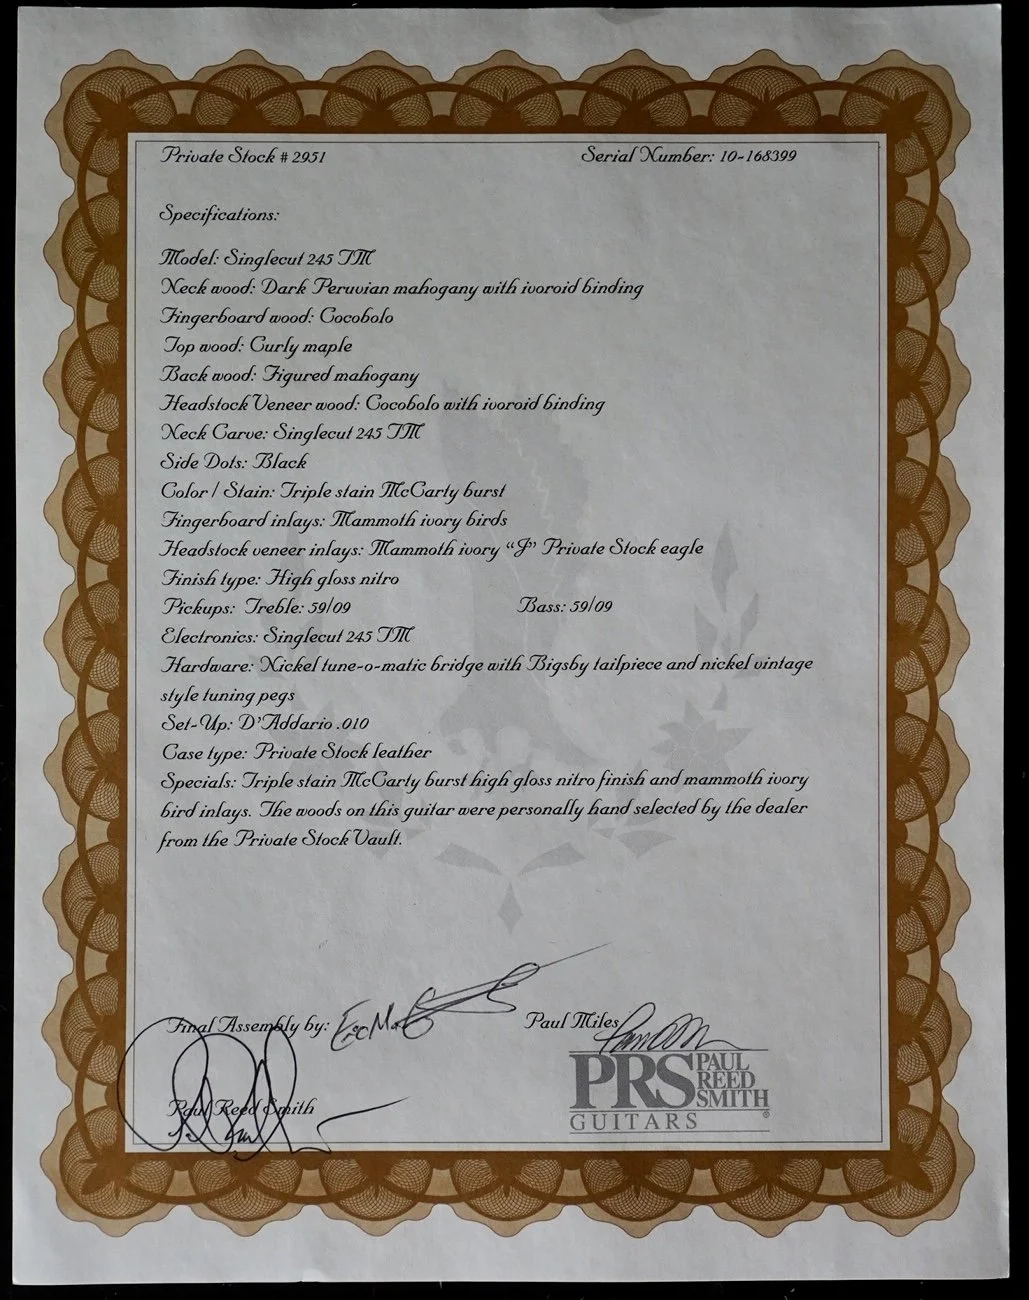 Private Stock # 2951 Serial Number: 10-168399
Specifications:
Model: Singlecut 245 TM
Neck wood: Dark Peruvian mahogany with ivoroid binding
Fingerboard wood: Cocobolo
Top wood: Curly maple
Back wood: Figured mahogany
Headstock Veneer wood: Cocobolo with ivoroid binding
Neck Carve: Singlecut 245 TM
Side Dots: Black
Color / Stain: Triple stain McCarty burst
Fingerboard inlays: Mammoth ivory birds
Headstock veneer inlays: Mammoth ivory “J” Private Stock eagle
Finish type: High gloss nitro
Pickups: Treble: 59/09 Bass: 59/09
Electronics: Singlecut 245 TM
Hardware: Nickel tune-o-matic bridge with Bigsby tailpiece and nickel vintage
style tuning pegs
Set-Up: D'Addario .010
Case type: Private Stock leather
Specials: Triple stain McCarty burst high gloss nitro finish and mammoth ivory
bird inlays. The woods on this guitar were personally hand selected by the dealer
from the Private Stock Vault.
Final Assembly by:
Paul Miles
Paul Reed Smith
PRS PAUL
REED
SMITH
GUITARS ®